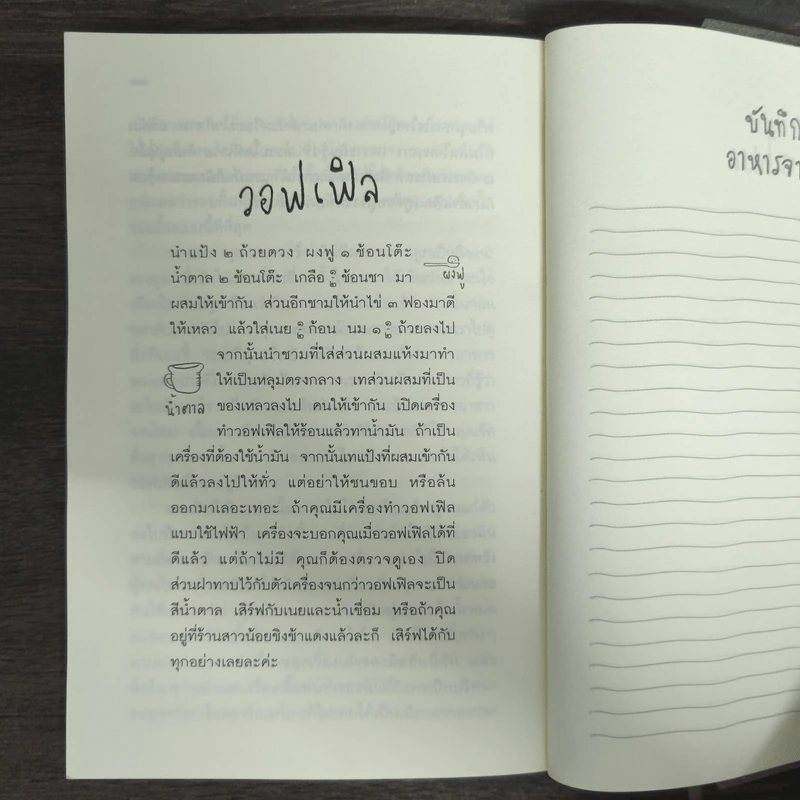 วอฟเฟิล
นำแป้ง ๒ ถ้วยตวง ผงฟู ๑ ช้อนโต๊ะ
น้ำตาล ๒ ช้อนโต๊ะ เกลือ ๑/๒ ช้อนชา มา
ผงฟู
ผสมให้เข้ากัน ส่วนอีกชามให้นำไข่ ๓ ฟองมาตี
ให้เหลว แล้วใส่เนย ๑/๒ ก้อน นม ๑ ๑/๒ ถ้วยลงไป
จากนั้นนำชามที่ใส่ส่วนผสมแห้งมาทำ
ให้เป็นหลุมตรงกลาง เทส่วนผสมที่เป็น
น้ำตาล
ของเหลวลงไป คนให้เข้ากัน เปิดเครื่อง
ทำวอฟเฟิลให้ร้อนแล้วทาน้ำมัน ถ้าเป็น
เครื่องที่ต้องใช้น้ำมัน จากนั้นเทแป้งที่ผสมเข้ากัน
ดีแล้วลงไปให้ทั่ว แต่อย่าให้ชนขอบ หรือล้น
ออกมาเลอะเทอะ ถ้าคุณมีเครื่องทำวอฟเฟิล
แบบใช้ไฟฟ้า เครื่องจะบอกคุณเมื่อวอฟเฟิลได้ที่
ดีแล้ว แต่ถ้าไม่มี คุณก็ต้องตรวจดูเอง ปิด
ส่วนฝาทาบไว้กับตัวเครื่องจนกว่าวอฟเฟิลจะเป็น
สีน้ำตาล เสิร์ฟกับเนยและน้ำเชื่อม หรือถ้าคุณ
อยู่ที่ร้านสาวน้อยชิงช้าแดงแล้วละก็ เสิร์ฟได้กับ
ทุกอย่างเลยละค่ะ
บันทึก
อาหารจา